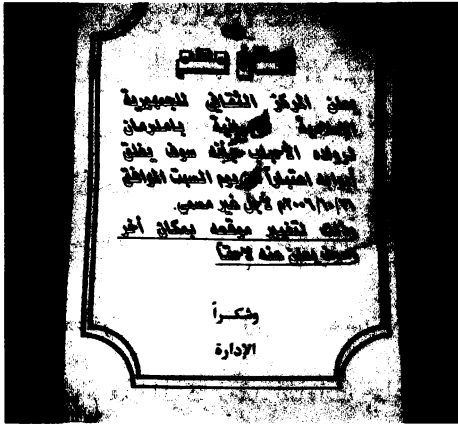 إعلان هام
يعلن المركز الثقافي للجمهورية
الإسلامية الإيرانية بأمدرمان
لرواده الأحباب بأنه سوف يغلق
أبوابه إعتباراً من يوم السبت الموافق
٢٠٠٦/١٠/٢١م لأجل غير مسمى.
وذلك لتغيير موقعه بمكان أخر
وسوف يعلن عنه لاحقاً
وشكراً
الإدارة